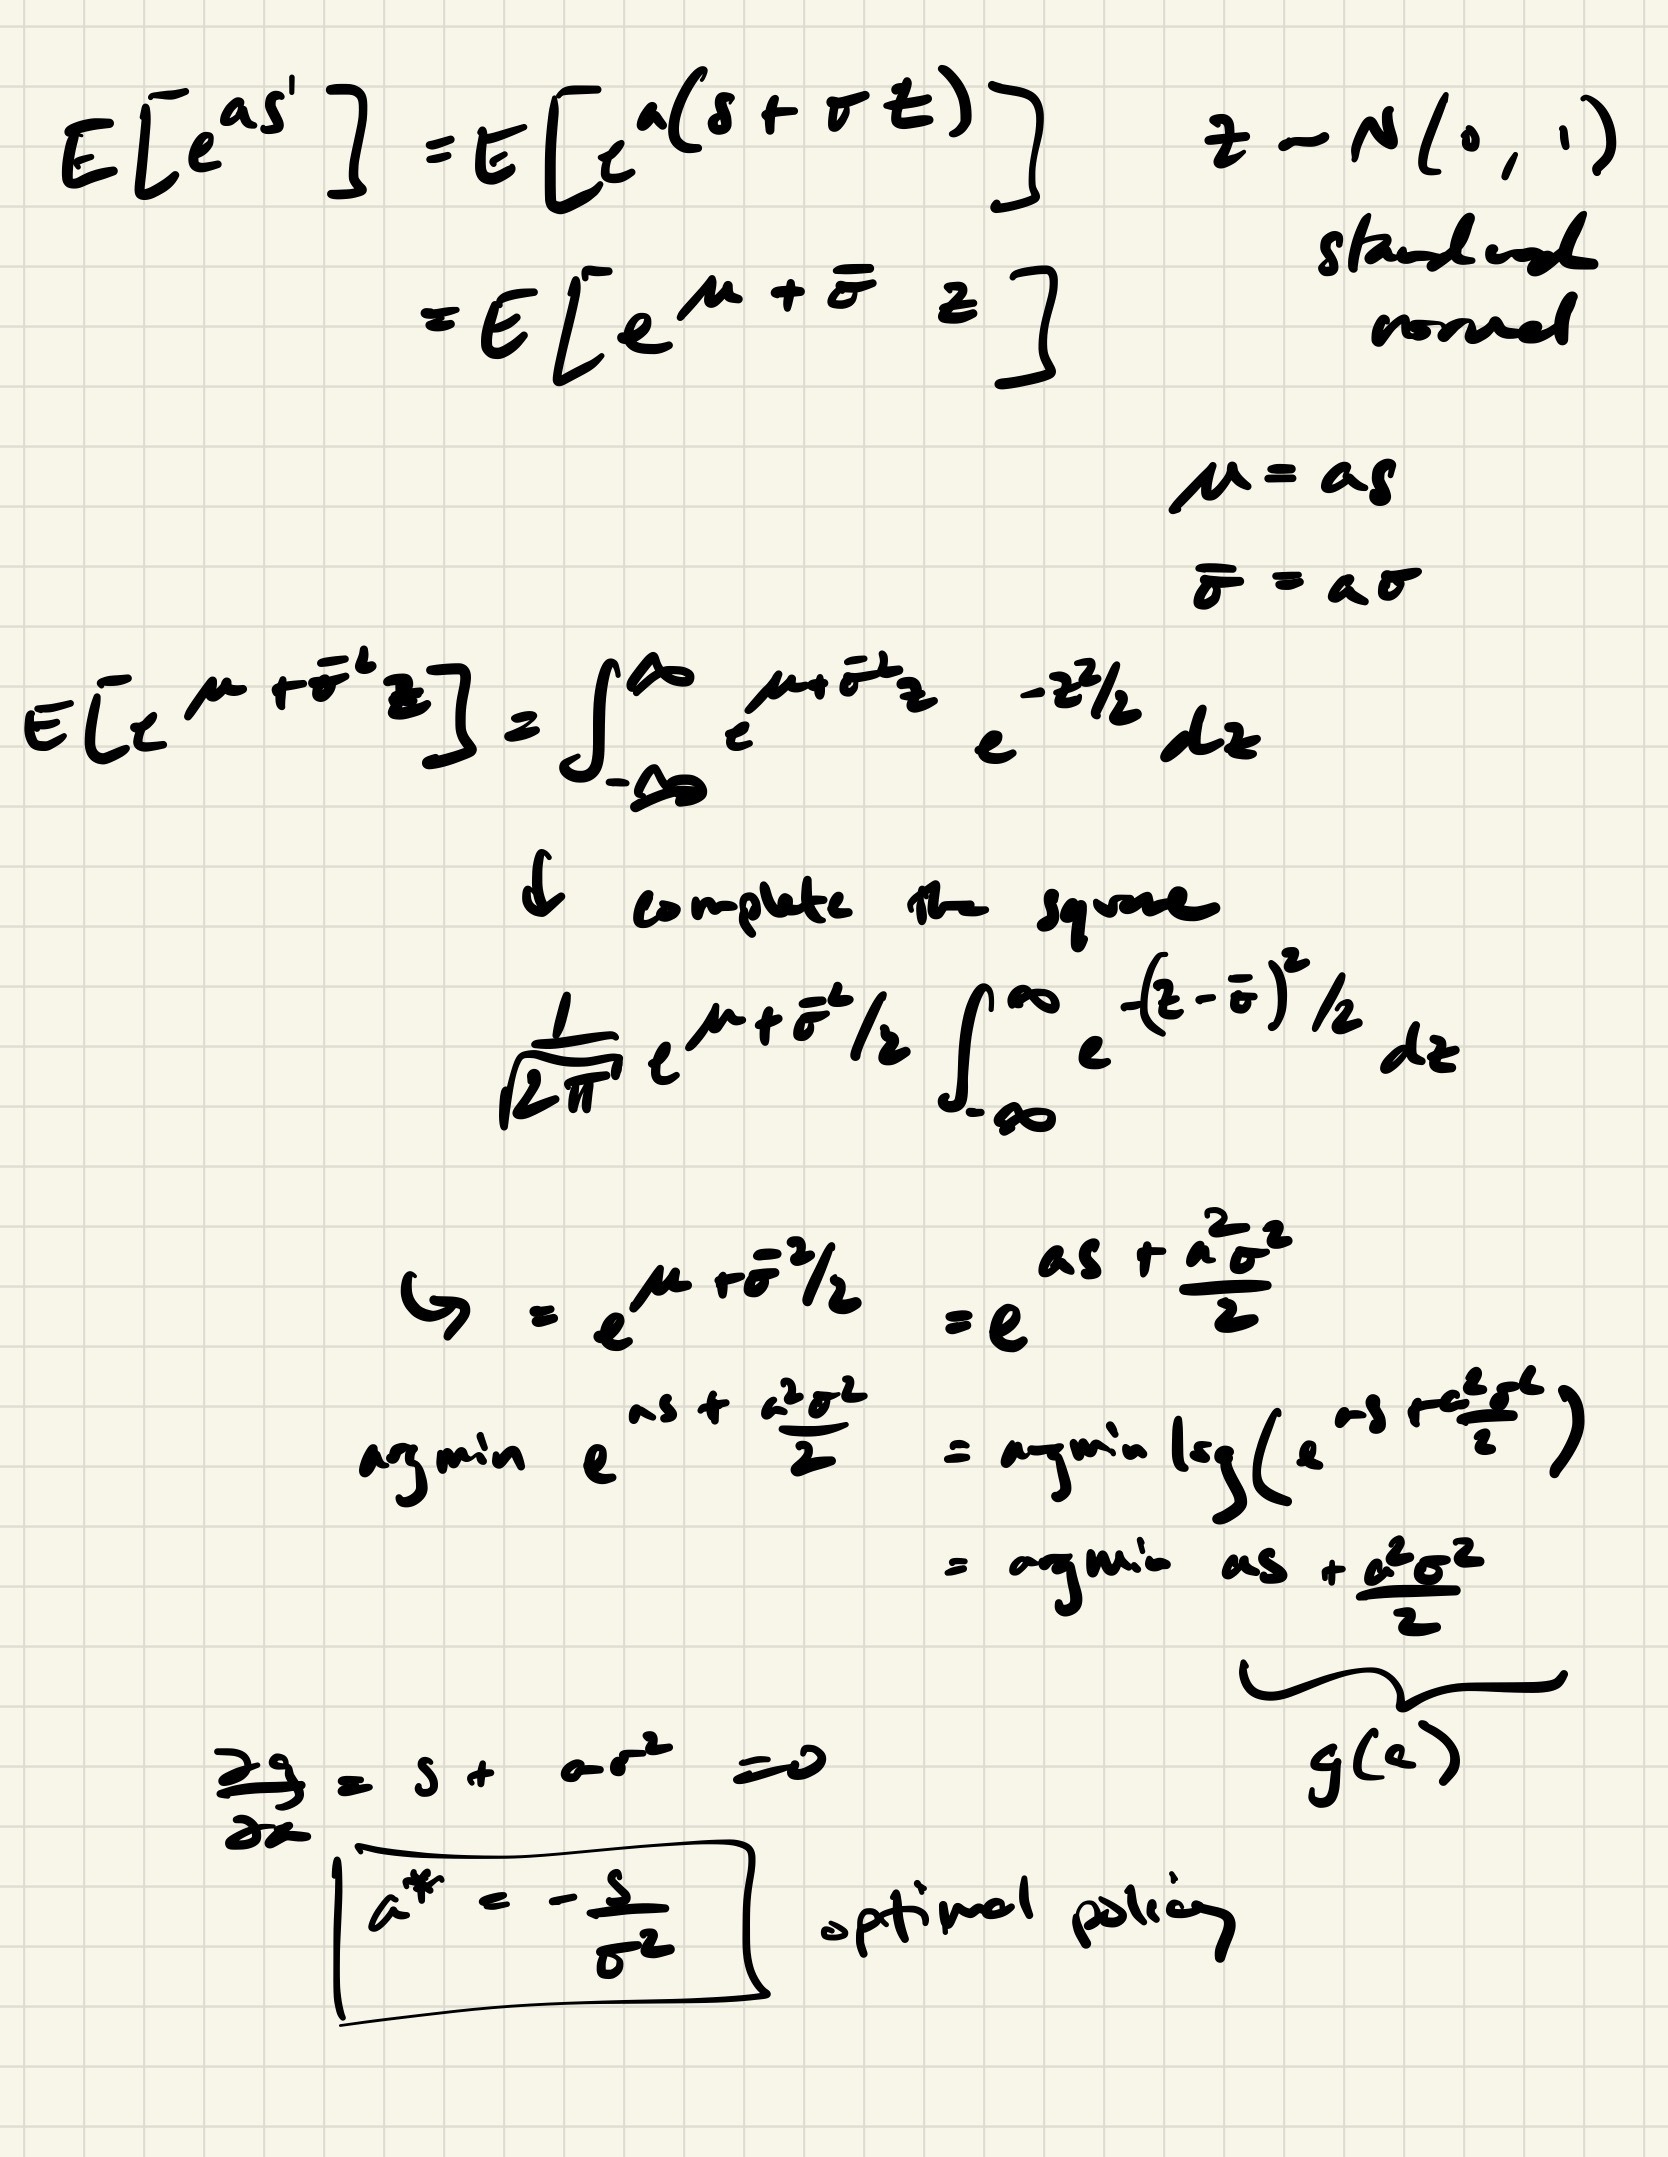 E[e^{as'}] = E[e^{a(s + σz)}] z ~ N(0, 1)
standard
= E[e^{μ + σ̄ z}] normal
μ = as
σ̄ = aσ
E[e^{μ + σ̄² z}] = ∫_{-∞}^{∞} e^{μ + σ̄² z} e^{-z²/2} dz
↓ complete the square
1/√(2π) e^{μ + σ̄²/2} ∫_{-∞}^{∞} e^{-(z - σ̄)²/2} dz
↪ = e^{μ + σ̄²/2} = e^{as + a²σ²/2}
argmin e^{as + a²σ²/2} = argmin log(e^{as + a²σ²/2})
= argmin as + a²σ²/2
g(a)
∂g/∂a = s + aσ² = 0
a* = - s/σ² optimal policy